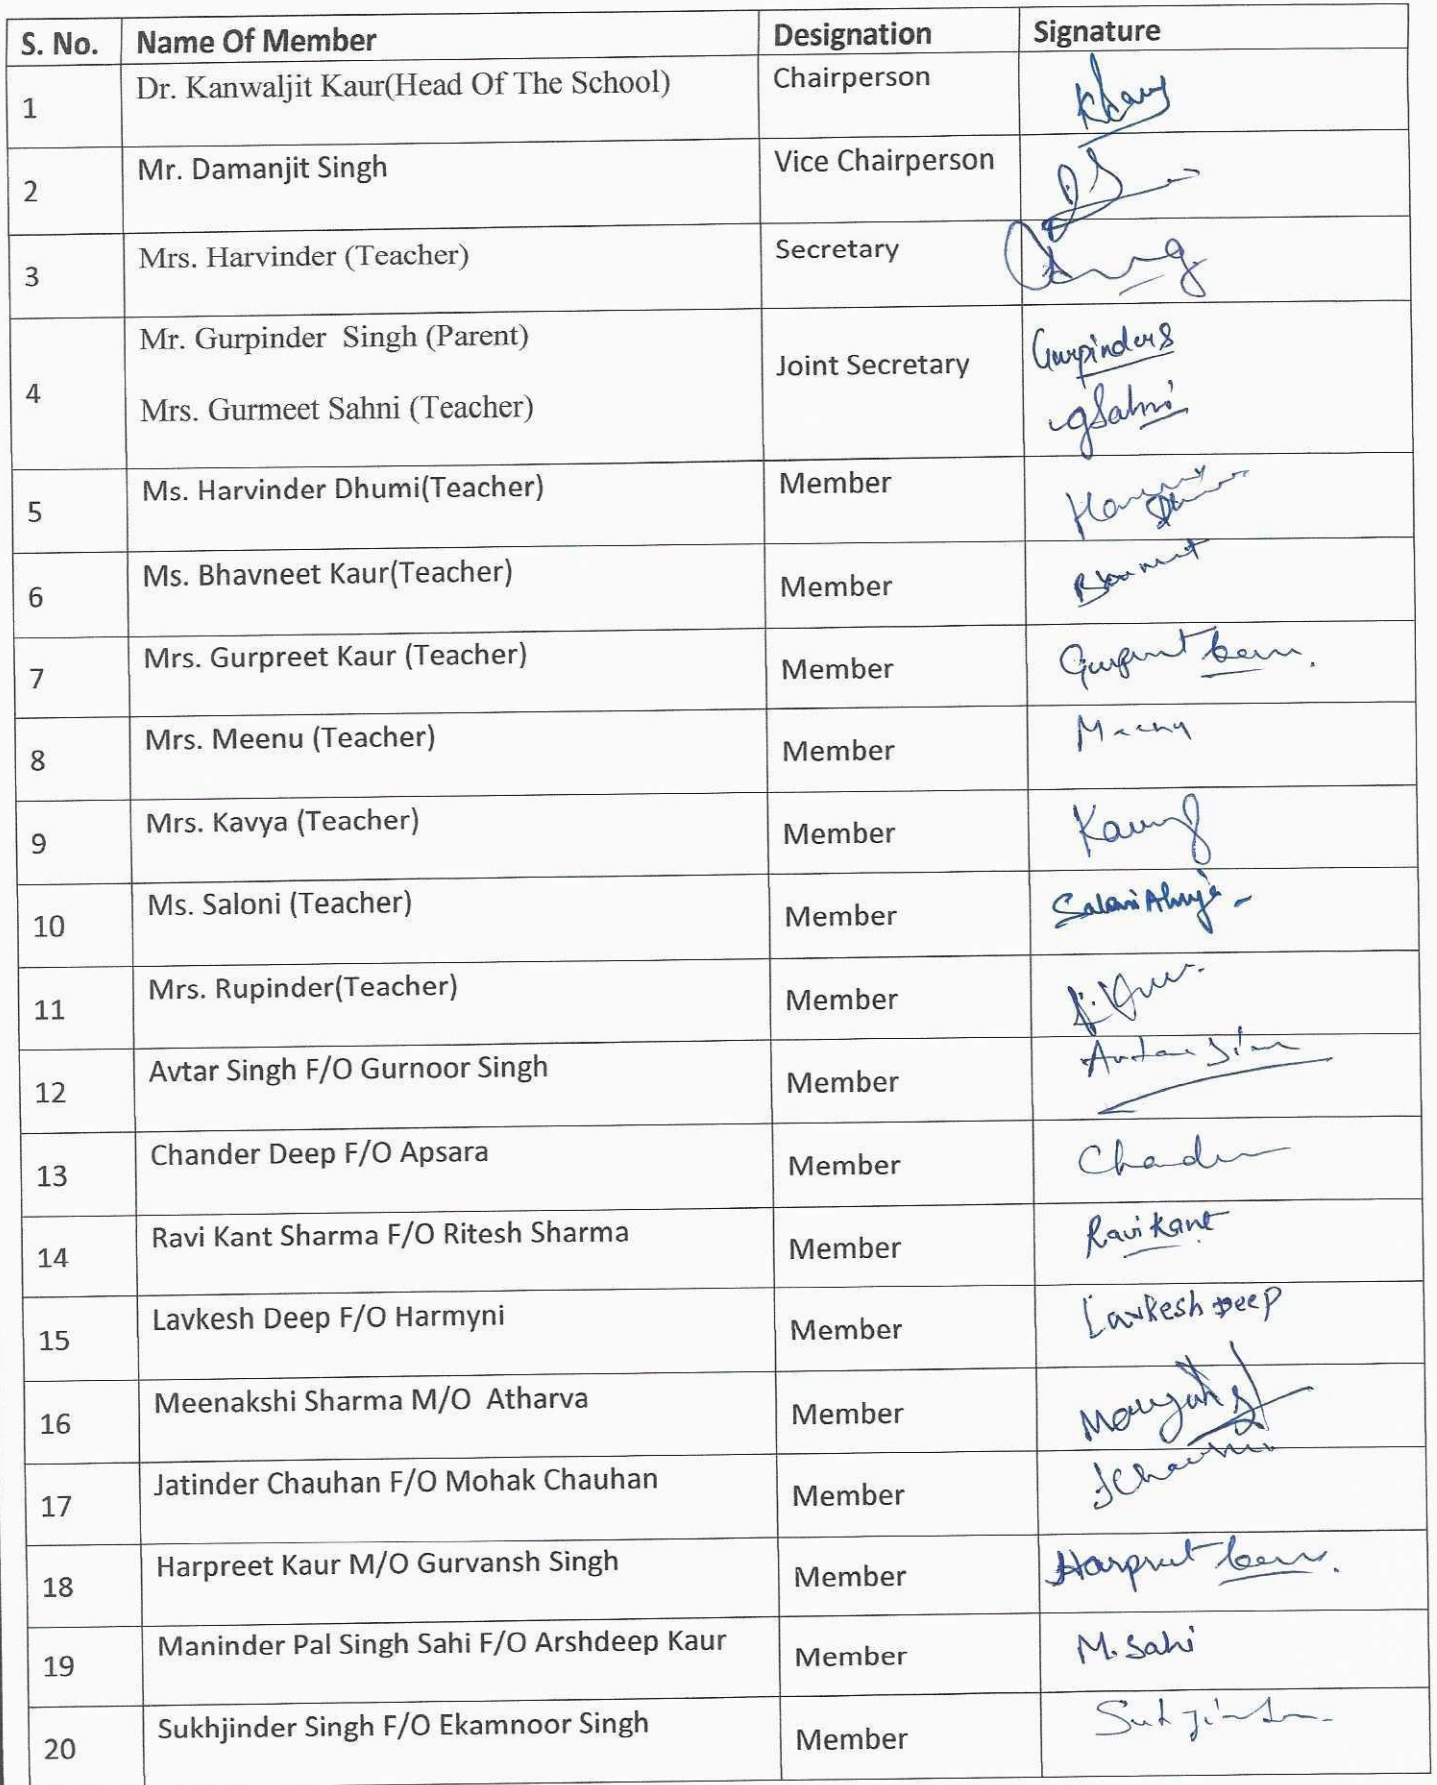 S. No. Name Of Member Designation Signature
1 Dr. Kanwaljit Kaur(Head Of The School) Chairperson
2 Mr. Damanjit Singh Vice Chairperson
3 Mrs. Harvinder (Teacher) Secretary
4 Mr. Gurpinder Singh (Parent) Joint Secretary GurpinderS
Mrs. Gurmeet Sahni (Teacher) gSahni
5 Ms. Harvinder Dhumi(Teacher) Member
6 Ms. Bhavneet Kaur(Teacher) Member
7 Mrs. Gurpreet Kaur (Teacher) Member
8 Mrs. Meenu (Teacher) Member
9 Mrs. Kavya (Teacher) Member
10 Ms. Saloni (Teacher) Member Saloni Ahuja
11 Mrs. Rupinder(Teacher) Member
12 Avtar Singh F/O Gurnoor Singh Member
13 Chander Deep F/O Apsara Member
14 Ravi Kant Sharma F/O Ritesh Sharma Member Ravi Kant
15 Lavkesh Deep F/O Harmyni Member Lavkesh Deep
16 Meenakshi Sharma M/O Atharva Member
17 Jatinder Chauhan F/O Mohak Chauhan Member
18 Harpreet Kaur M/O Gurvansh Singh Member
19 Maninder Pal Singh Sahi F/O Arshdeep Kaur Member M. Sahi
20 Sukhjinder Singh F/O Ekamnoor Singh Member